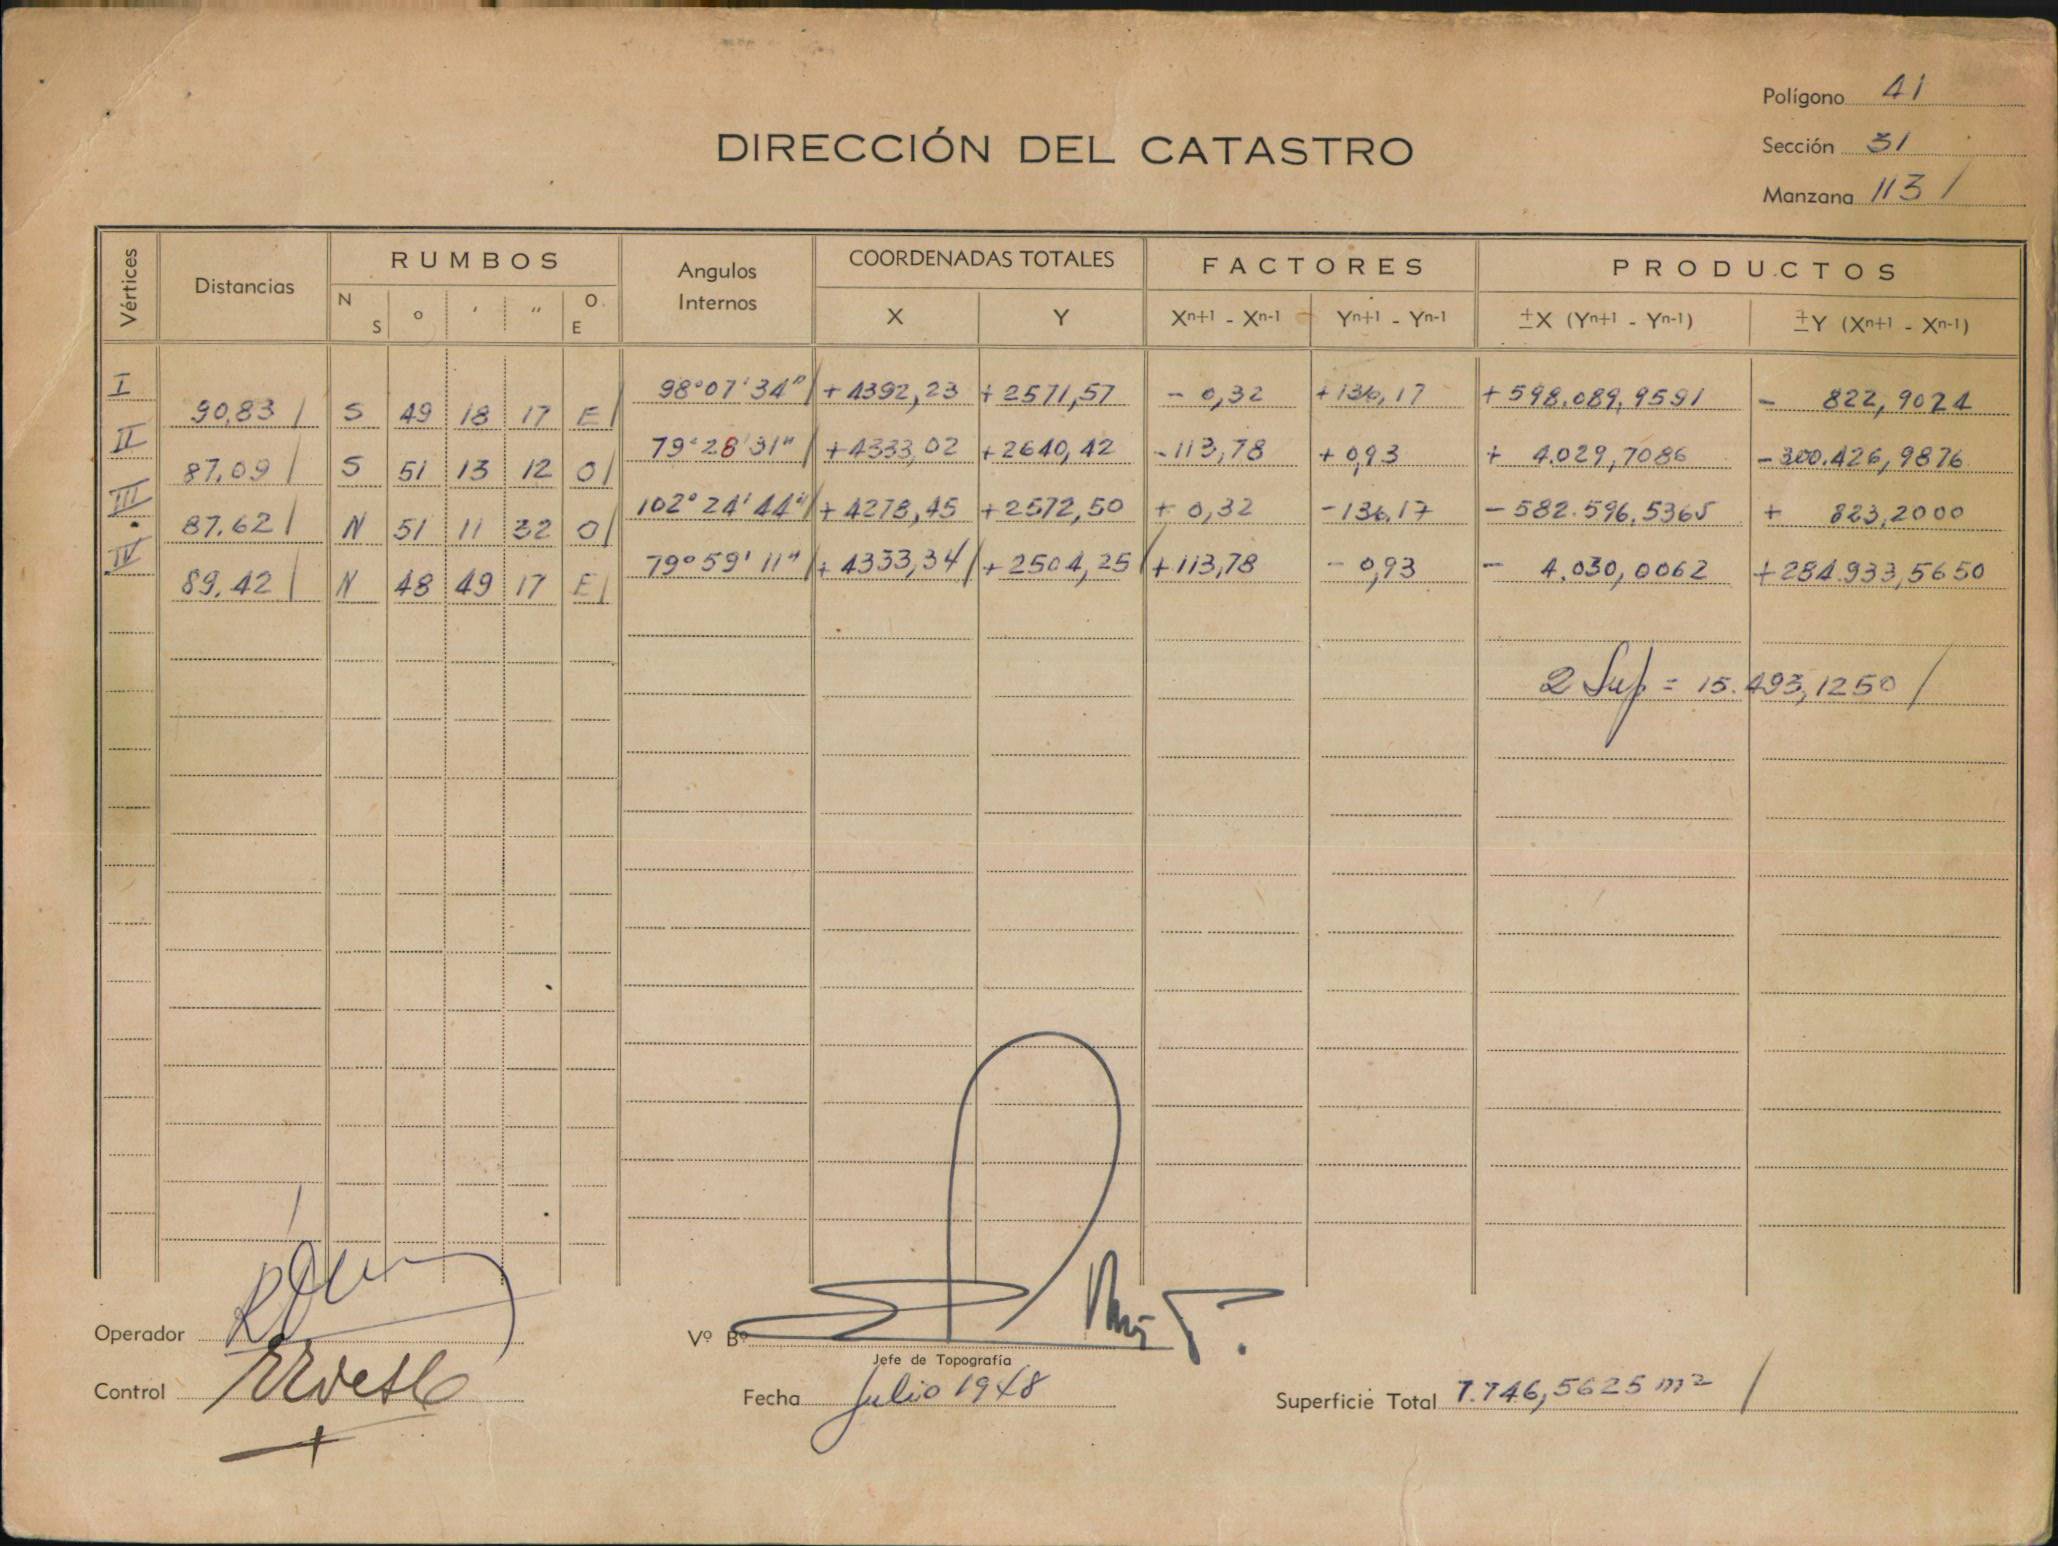 Polígono 41
DIRECCIÓN DEL CATASTRO
Sección 31
Manzana 113 /
Vértices Distancias RUMBOS Angulos Internos COORDENADAS TOTALES FACTORES PRODUCTOS
N S ° ' " O. E X Y Xn+1 - Xn-1 Yn+1 - Yn-1 ±X (Yn+1 - Yn-1) ±Y (Xn+1 - Xn-1)
I 98°07'34" / +4392,23 +2571,57 - 0,32 +136,17 +598.089,9591 - 822,9024
90,83 / S 49 18 17 E /
II 79°28'31" / +4333,02 +2640,42 -113,78 +0,93 + 4.029,7086 -300.426,9876
87,09 / S 51 13 12 O /
III 102°24'44" / +4278,45 +2572,50 + 0,32 -136,17 -582.596,5365 + 823,2000
87,62 / N 51 11 32 O /
IV 79°59'11" / +4333,34 / +2504,25 / +113,78 - 0,93 - 4.030,0062 +284.933,5650
89,42 / N 48 49 17 E /
2 Sup = 15.493,1250 /
Operador
Vº Bº
Jefe de Topografía
Control
Fecha Julio 1948
Superficie Total 7.746,5625 m² /